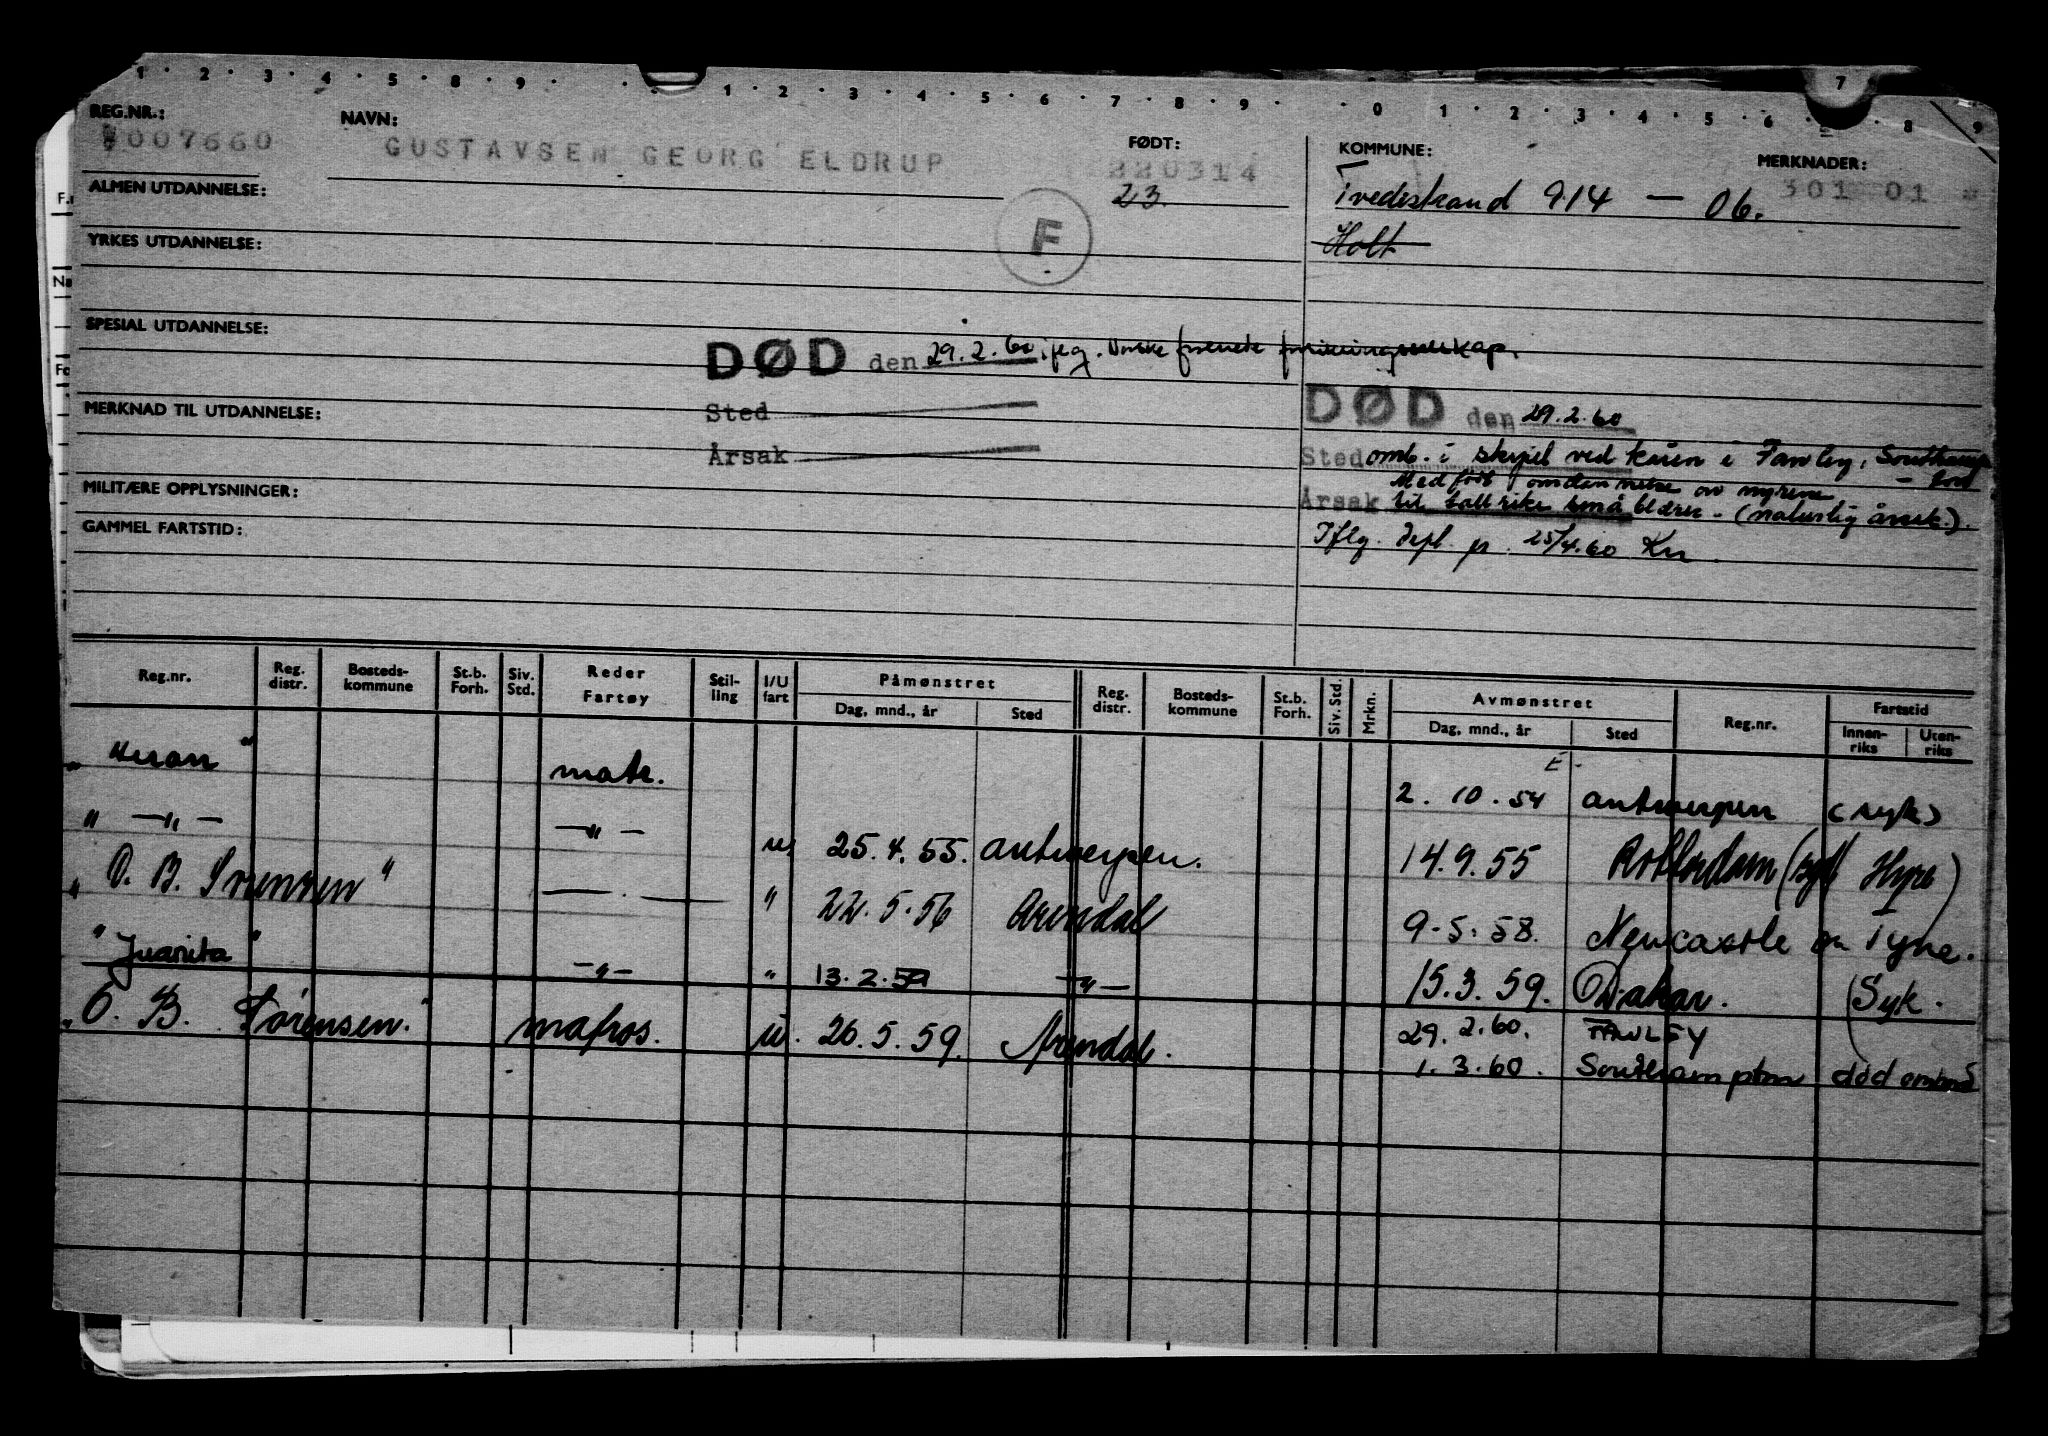 1 · 2 · 3 · 4 · 5 · 8 · 9 · 1 · 2 · 3 · 4 · 5 · 6 · 7 · 8 · 9 · 0 · 1 · 2 · 3 · 4 · 5 · 6 · 7 · 8 · 9
REG.NR.: NAVN: FØDT: KOMMUNE: MERKNADER:
007660 GUSTAVSEN GEORG ELDRUP 220314 301 01
23. Tvedestrand 914 — 06.
ALMEN UTDANNELSE:
F
Holt
YRKES UTDANNELSE:
SPESIAL UTDANNELSE:
DØD den 29.2.60 ifg. Norske forenede forsikringsselskap.
MERKNAD TIL UTDANNELSE:
Sted
Årsak
DØD den 29.2.60
Sted omb. i skipet ved kaien i Fawley, Southamp-
ton
Med født omdannelse av nyrene
Årsak til tallrike små blærer - (naturlig årsak).
Iflg. dept. p. 25/4.60
MILITÆRE OPPLYSNINGER:
GAMMEL FARTSTID:
Reg.nr. Reg. distr. Bosteds-kommune St.b. Forh. Siv. Std. Reder Fartøy Stil-ling I/U fart Påmønstret Dag, mnd., år Sted Reg. distr. Bosteds-kommune St.b. Forh. Siv. Std. Mrkn. Avmønstret Dag, mnd., år Sted Reg.nr. Fartstid Innen-riks Uten-riks
" " matr. 2.10.54 Antwerpen (syk)
" —"— —"— u. 25.4.55. Antwerpen. 14.9.55 Rotterdam (syk Hyre)
" O. B. Sørensen " — — " 22.5.56 Arendal 9.5.58. Newcastle on Tyne.
" Juanita " —"— " 13.2.59 —"— 15.3.59. Dakar. (Syk.
" O. B. Sørensen. " matros. u. 26.5.59. Arendal. 29.2.60. FAWLEY
1.3.60. Southampton død ombord